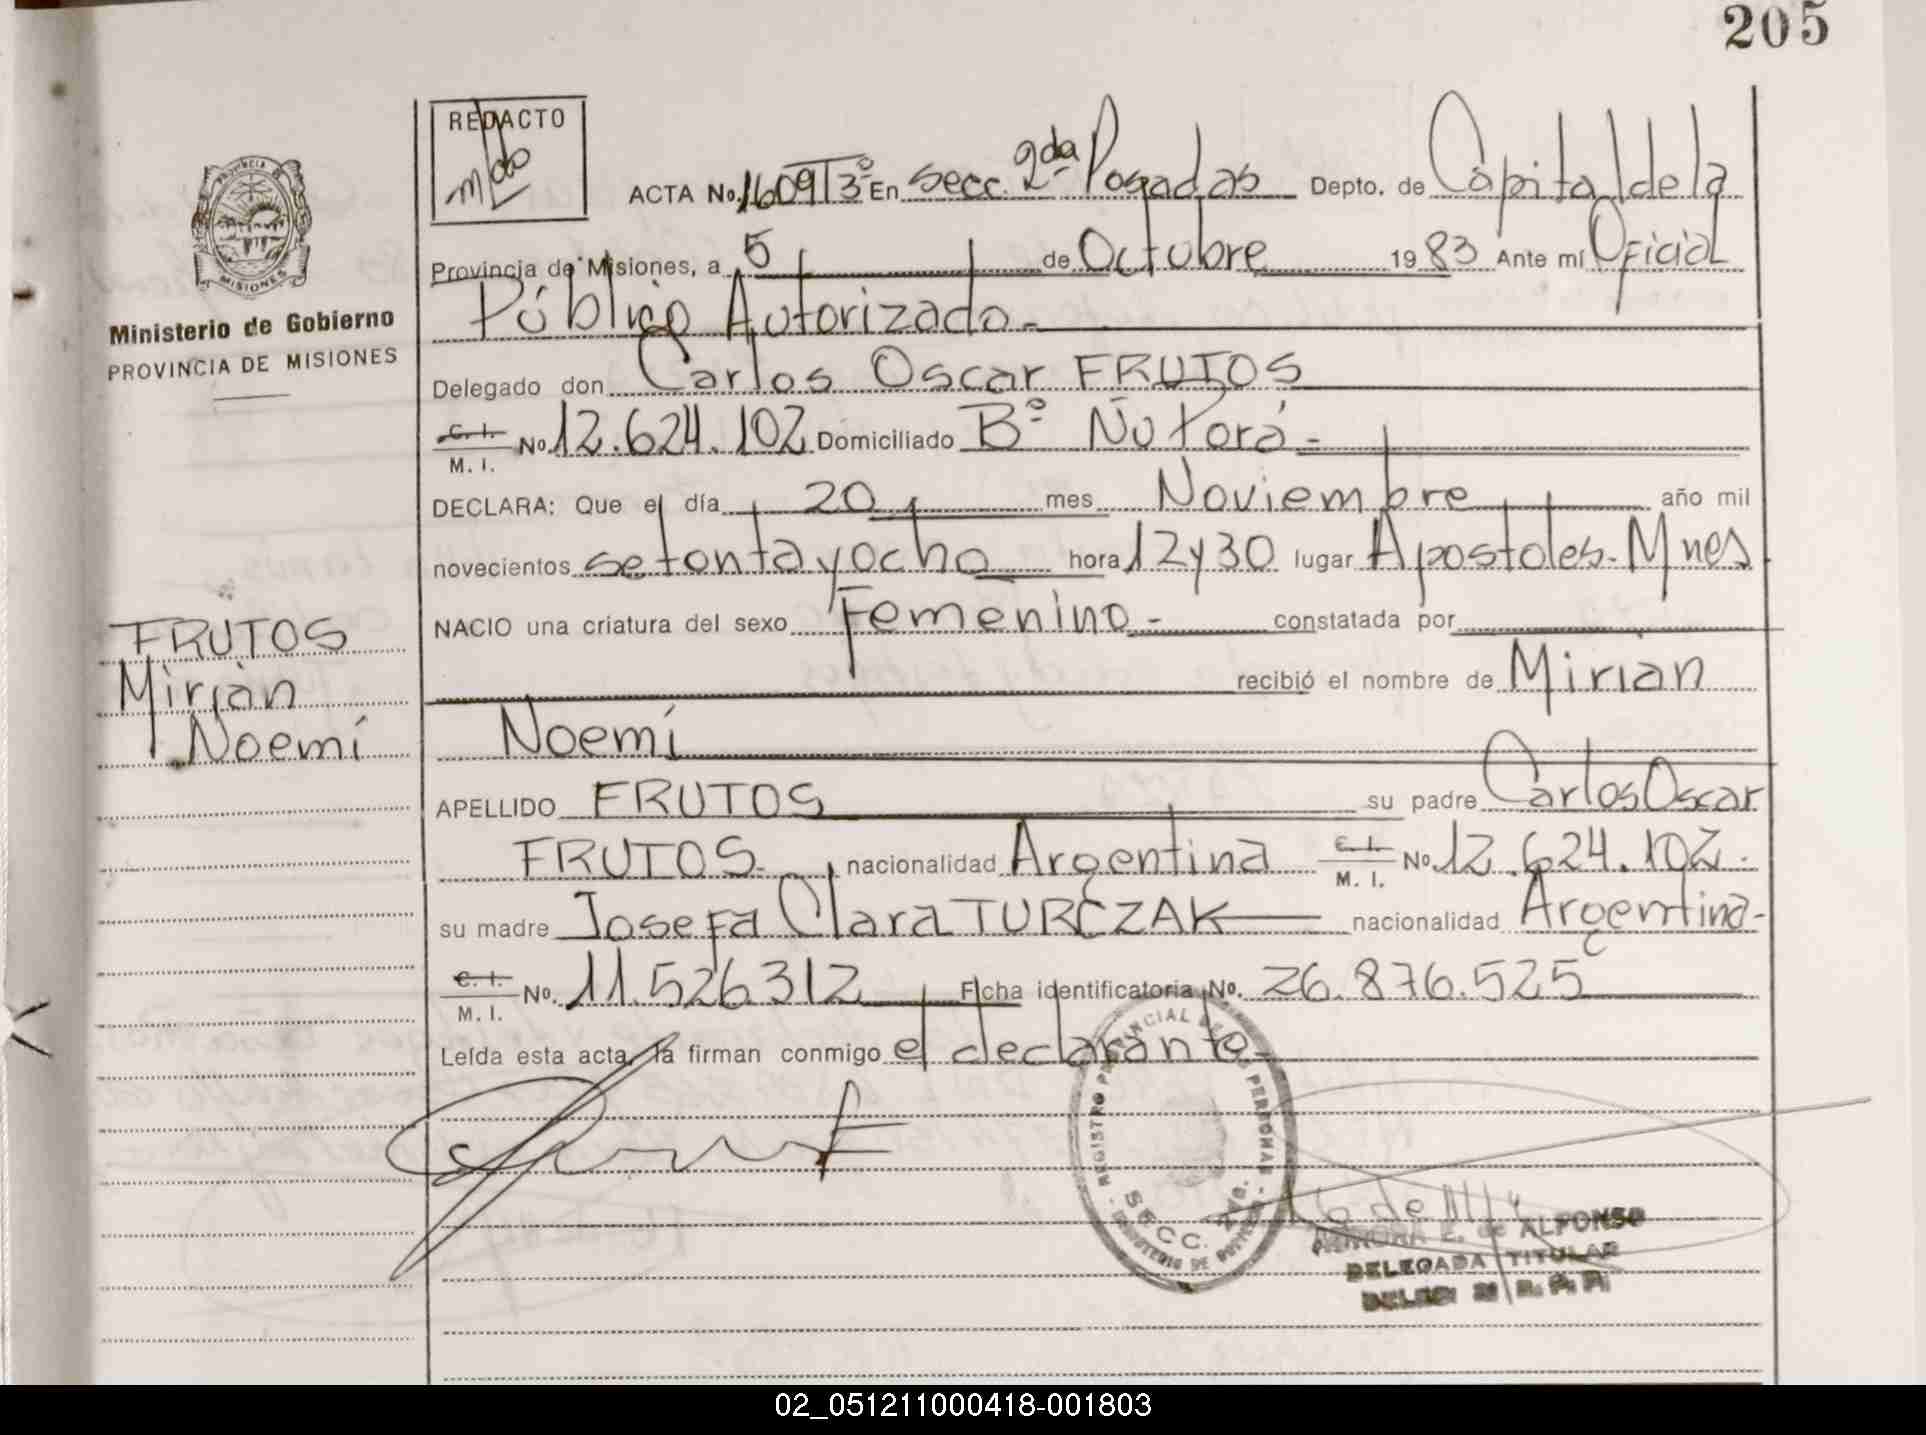 205
REDACTO
ACTA No. 1609 T 3º En secc. 2da Posadas Depto. de Capital de la
Provincia de Misiones, a 5 de Octubre 1983 Ante mí Oficial
Público Autorizado.-
Delegado don Carlos Oscar FRUTOS
C. I.
M. I. No. 12.624.102 Domiciliado Bº Ñu Porá-
DECLARA: Que el día 20 mes Noviembre año mil
novecientos setenta y ocho hora 12 y 30 lugar Apostoles-Mnes
NACIO una criatura del sexo Femenino- constatada por
recibió el nombre de Mirian
Noemí
APELLIDO FRUTOS su padre Carlos Oscar
FRUTOS.- nacionalidad Argentina C. I. M. I. No. 12.624.102.
su madre Josefa Clara TURCZAK nacionalidad Argentina-
C. I.
M. I. No. 11.526.312 Ficha identificatoria No. 26.876.525
Leída esta acta, la firman conmigo el declarante-
MISIONES
Ministerio de Gobierno
PROVINCIA DE MISIONES
FRUTOS
Mirian
Noemí
REGISTRO PROVINCIAL DE LAS PERSONAS
SECC. 2da.
E. de ALFONSO
DELEGADA TITULAR
02_051211000418-001803